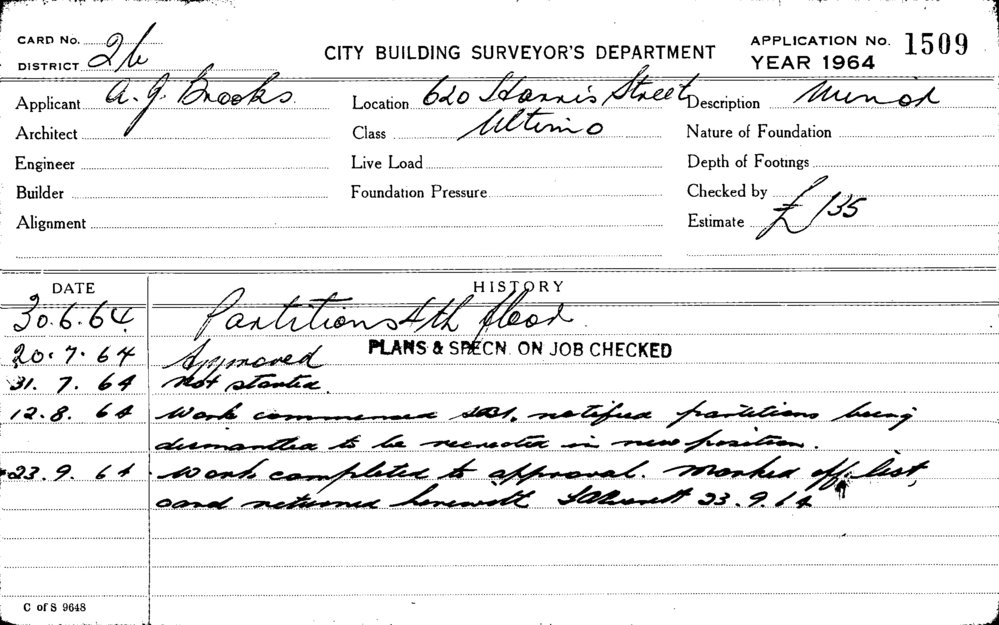 CARD No.
DISTRICT 26
CITY BUILDING SURVEYOR'S DEPARTMENT
APPLICATION No. 1509
YEAR 1964
Applicant A. J. Brooks.
Location 620 Harris Street
Description Minor
Architect
Class Ultimo
Nature of Foundation
Engineer
Live Load
Depth of Footings
Builder
Foundation Pressure
Checked by
Alignment
Estimate £135
DATE
HISTORY
30.6.64 Partitions 4th floor.
20.7.64 Approved PLANS & SPECN. ON JOB CHECKED
31.7.64 Not started.
12.8.64 Work commenced notified partitions being
dismantled to be reerected in new position.
23.9.64 Work completed to approval. Marked off list,
card returned herewith 23.9.64
C of S 9648